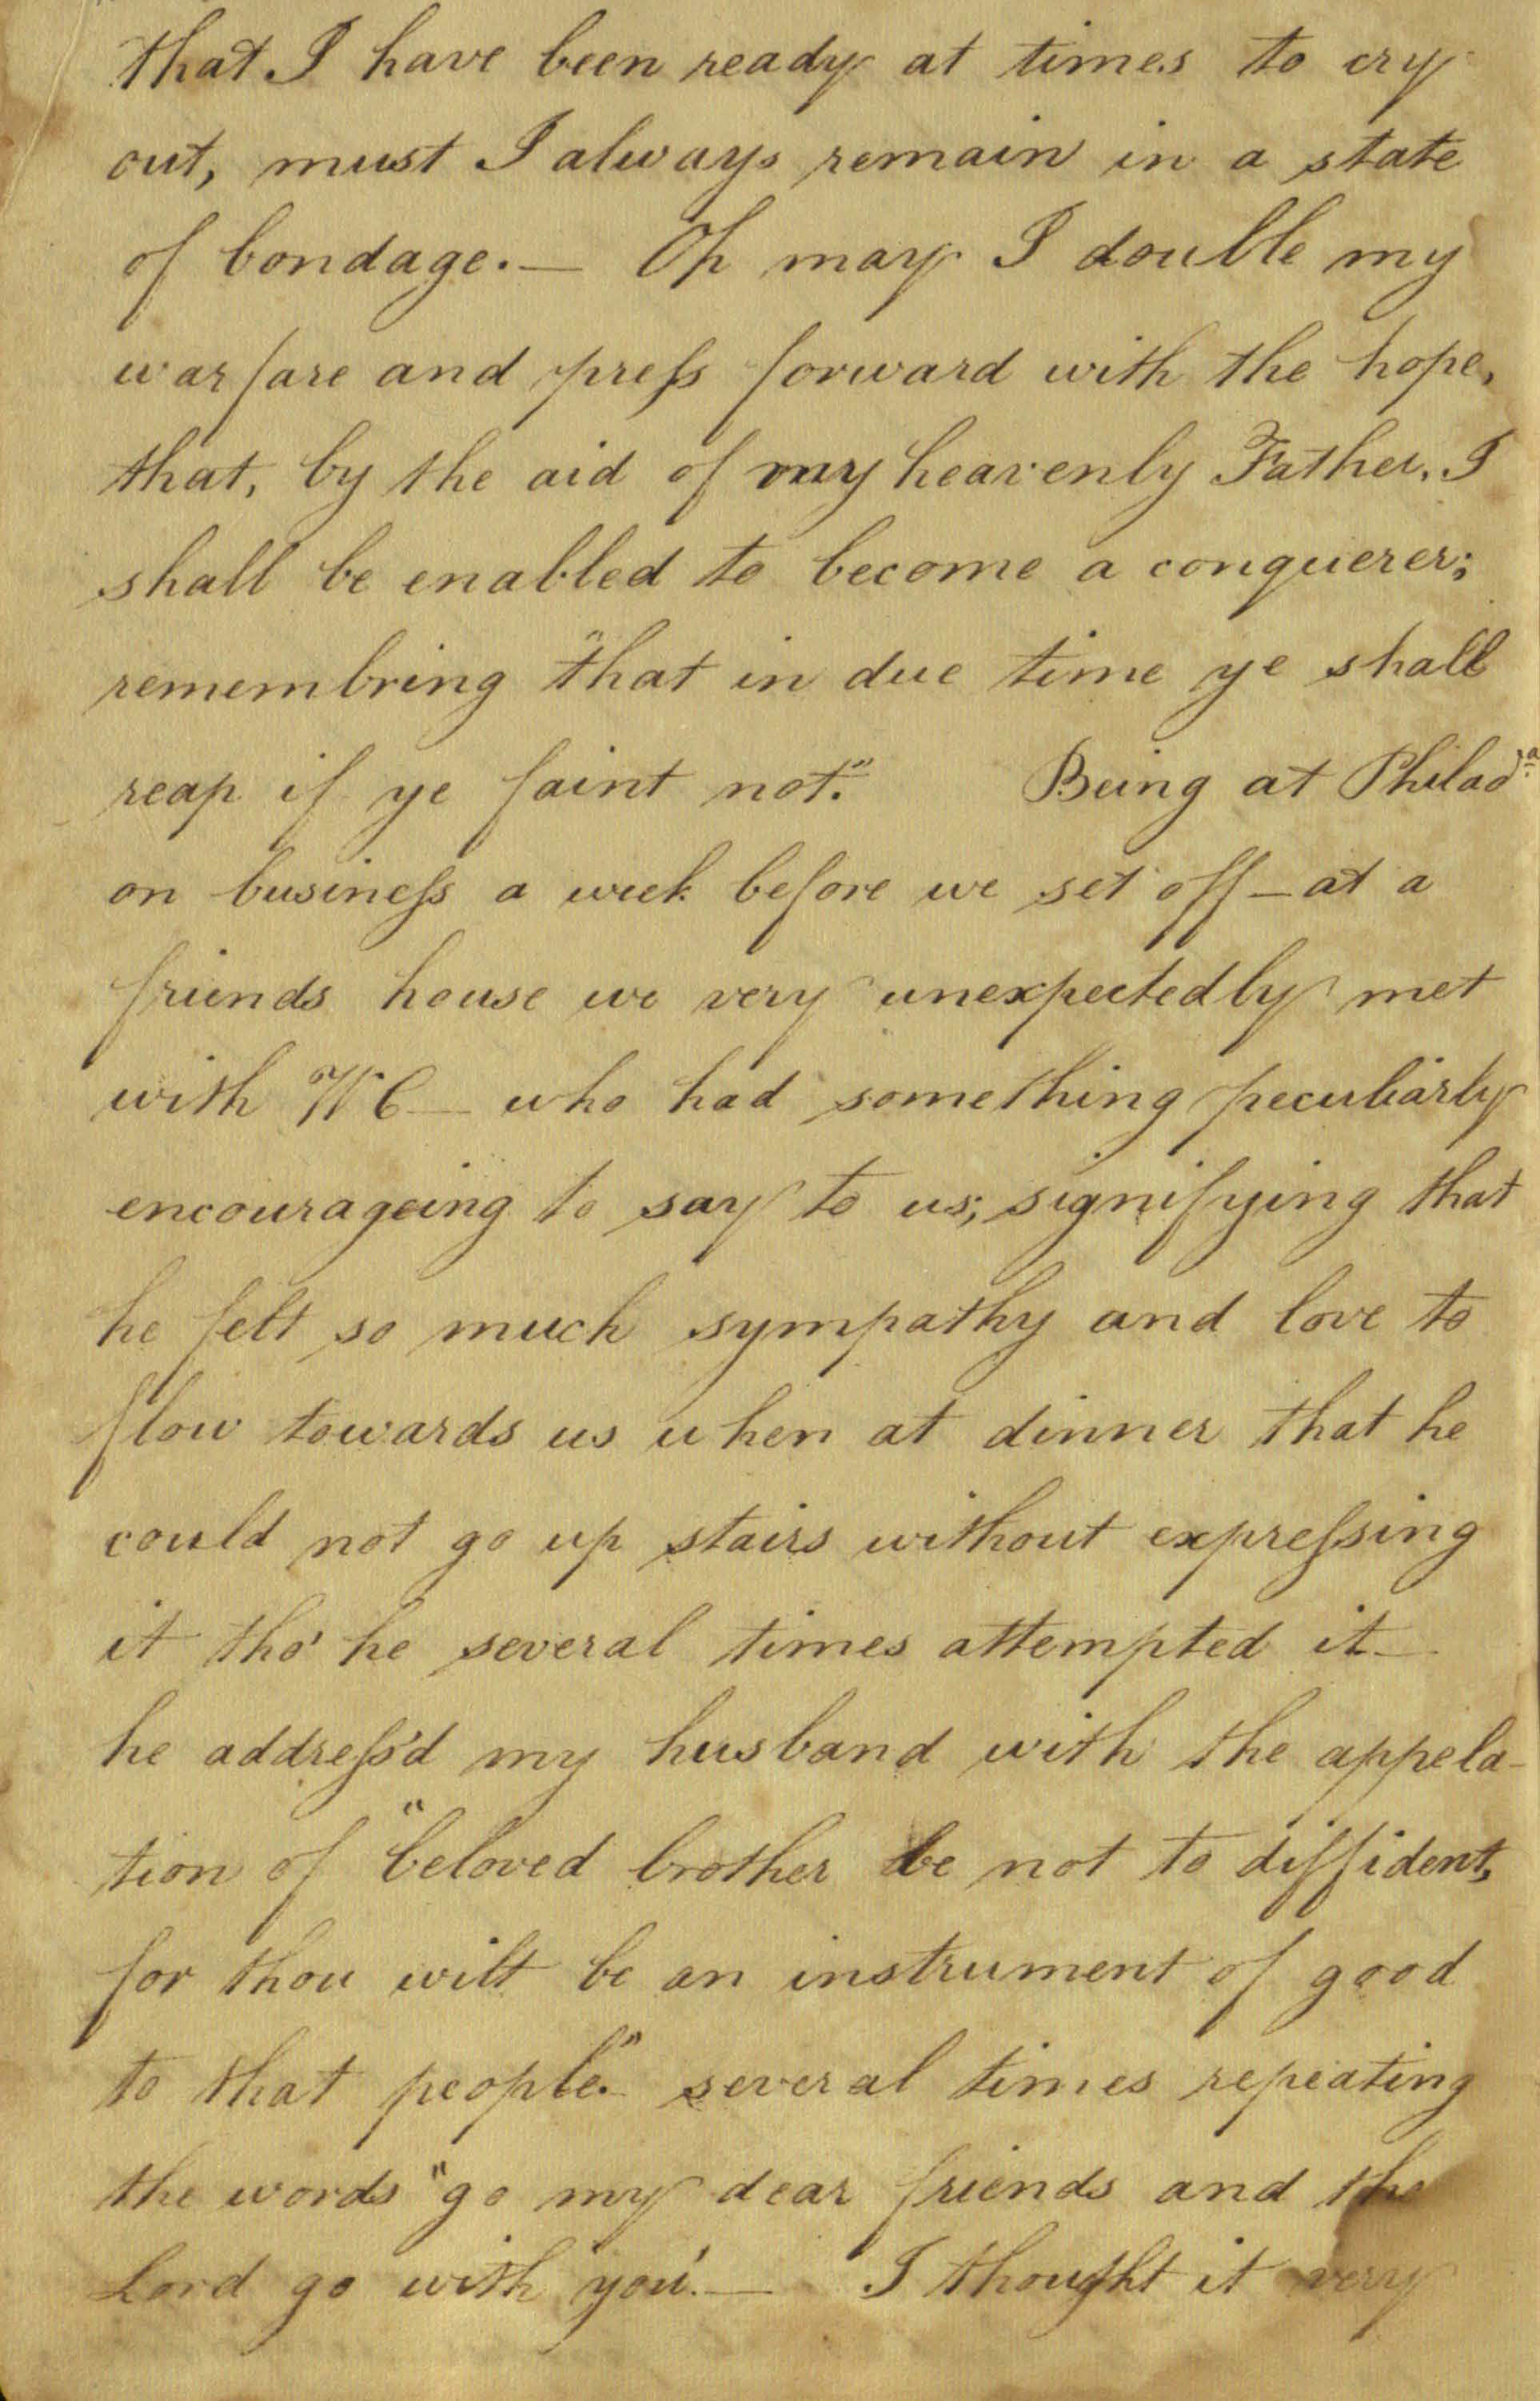 that I have been ready at times to cry
out, must I always remain in a state
of bondage.— Oh may I double my
warfare and press forward with the hope,
that, by the aid of my heavenly Father, I
shall be enabled to become a conquerer;
remembring "that in due time ye shall
reap if ye faint not." Being at Philada
on business a week before we set off — at a
friends house we very unexpectedly met
with W C — who had something peculiarly
encourageing to say to us; signifying that
he felt so much sympathy and love to
flow towards us when at dinner that he
could not go up stairs without expressing
it tho' he several times attempted it —
he address'd my husband with the appela-
tion of "beloved brother be not to diffident,
for thou wilt be an instrument of good
to that people." several times repeating
the words "go my dear friends and the
Lord go with you'.— I thought it very